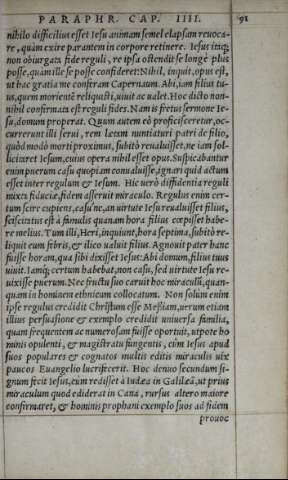 PARAPHR. CAP. IIII. 91
nihilo difficilius esset Iesu animam semel elapsam reuoca-
re, quàm exire parantem in corpore retinere. Iesus itaq;
non obiurgata fide reguli, re ipsa ostendit se longè plus
posse, quàm ille se posse confideret: Nihil, inquit, opus est,
ut hac gratia me conferam Capernaum. Abi, iam filius tu-
us, quem morientẽ reliquasti, uiuit ac ualet. Hoc dicto non-
nihil confirmata est reguli fides. Nam is fretus sermone Ie-
su, domum properat. Quum autem eò proficisceretur, oc-
currerunt illi serui, rem lætam nuntiaturi patri de filio,
quòd modò morti proximus, subitò reualuisset, ne iam sol-
licitaret Iesum, cuius opera nihil esset opus. Suspicabantur
enim puerum casu quopiam conualuisse, ignari quid actum
esset inter regulum & Iesum. Hic uerò diffidentia reguli
mixta fiduciæ, fidem asseruit miraculo. Regulus enim cer-
tum scire cupiens, casu'ne, an uirtute Iesu reualuisset filius,
sciscitatus est à famulis quanam hora filius cœpisset habe-
re melius. Tum illi, Heri, inquiunt, hora septima, subitò re-
liquit eum febris, & ilico ualuit filius. Agnouit pater hanc
fuisse horam, qua sibi dixisset Iesus: Abi domum, filius tuus
uiuit. Iamq; certum habebat, non casu, sed uirtute Iesu re-
uixisse puerum. Nec fructu suo caruit hoc miraculũ, quan-
quam in hominem ethnicum collocatum. Non solùm enim
ipse regulus credidit Christum esse Messiam, uerum etiam
illius persuasione & exemplo credidit uniuersa familia,
quam frequentem ac numerosam fuisse oportuit, utpote ho
minis opulenti, & magistratu fungentis, cùm Iesus apud
suos populares & cognatos multis editis miraculis uix
paucos Euangelio lucrifecerit. Hoc denuo secundum si-
gnum fecit Iesus, cùm redisset à Iudæa in Galilæã, ut prius
miraculum quod ediderat in Cana, rursus altero maiore
confirmaret, & hominis prophani exemplo suos ad fidem
prouoc